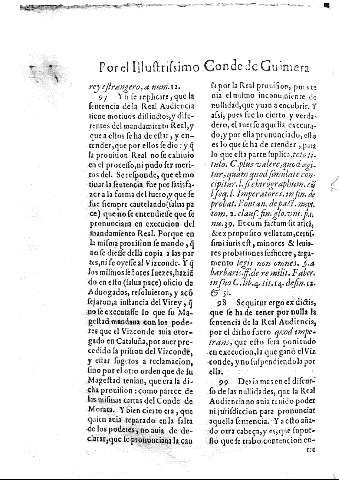 Por el Illustrissimo Conde de Guimera
rey estrangero, a num. 12.
97 Y si se replicare, que la
sentencia de la Real Audiencia
tiene motiuos distinctos, y dife-
rentes del mandamiento Real, y
que a ellos se ha de estar, y en-
tender, que por ellos se dio: y q̃
la prouision Real no se cabio
en el processo, ni pudo ser moti-
uos del. Se responde, que el mo-
tiuo de la sentencia fue por satisfa-
zer a la forma del fuero, y que fue
siempre cautelando (salua
pace) que no se entendiesse que se
pronunciaua en execucion del
mandamiento Real. Porque en
la misma prouision se manda, q̃
no se diesse della copia a las par-
tes, ni se oyesse al Vizconde. Y q̃
los mismos señores Iuezes, hazié
do en esto (salua pace) oficio de
Aduogados, resoluieron, y acó
sejaron, a instancia del Virey, q̃
no se executasse lo que su Ma-
gestad mandaua con los pode-
res que el Vizconde auia otor-
gado en Cataluña, por auer pre-
cedido la prision del Vizconde,
y estar sugetos a reclamacion,
sino por el otro orden que de su
Magestad tenian, que era la di-
cha prouision: como parece de
las mismas cartas del Conde de
Morata. Y bien cierto era, que
quien auia reparado en la falta
de los poderes, no auia de de-
clarar, que se pronunciaua la cau
sa por la Real prouision, pues te
nia el mismo inconueniente de
nullidad, que yuan a encubrir. Y
assi, pues fue lo cierto, y verda-
dero, el auerse aquella executa-
do, y por ella pronunciado, esto
es lo que se ha de atender, para
lo qual en esta parte suplico, toto ti-
tulo, C. plus valere, quod agi-
tur, quam quod simulate con-
cipitur. l. si chirographum. cũ
l. seq. l. Imperatores. in fin. de
probat.
num. 39. Et cum factum sit atrox,
& ex proposito vellatum, certis-
simi iuris est, minores & leuio-
res probationes sufficere, argu-
mento legis non omnes. §. a
barbaris. ff. de re milit. Faber.
in suo C. lib. 4. tit. 14. defin. 12.
& 31.
98 Sequitur ergo ex dictis,
que se ha de tener por nulla la
sentencia de la Real Audiencia,
por el dicho fuero quod impe-
trans, que esto sera poniendo
en execucion, la que ganò el Viz
conde, y no suspendiendola por
ella.
99 Dexiamas en el discur-
so de las nullidades, que la Real
Audiencia no auia tenido poder
ni jurisdiccion para pronunciar
aquella sentencia. Y a esto aña-
do otra cabeça, y es, que supue-
sto que se trabò contencion en-
tre